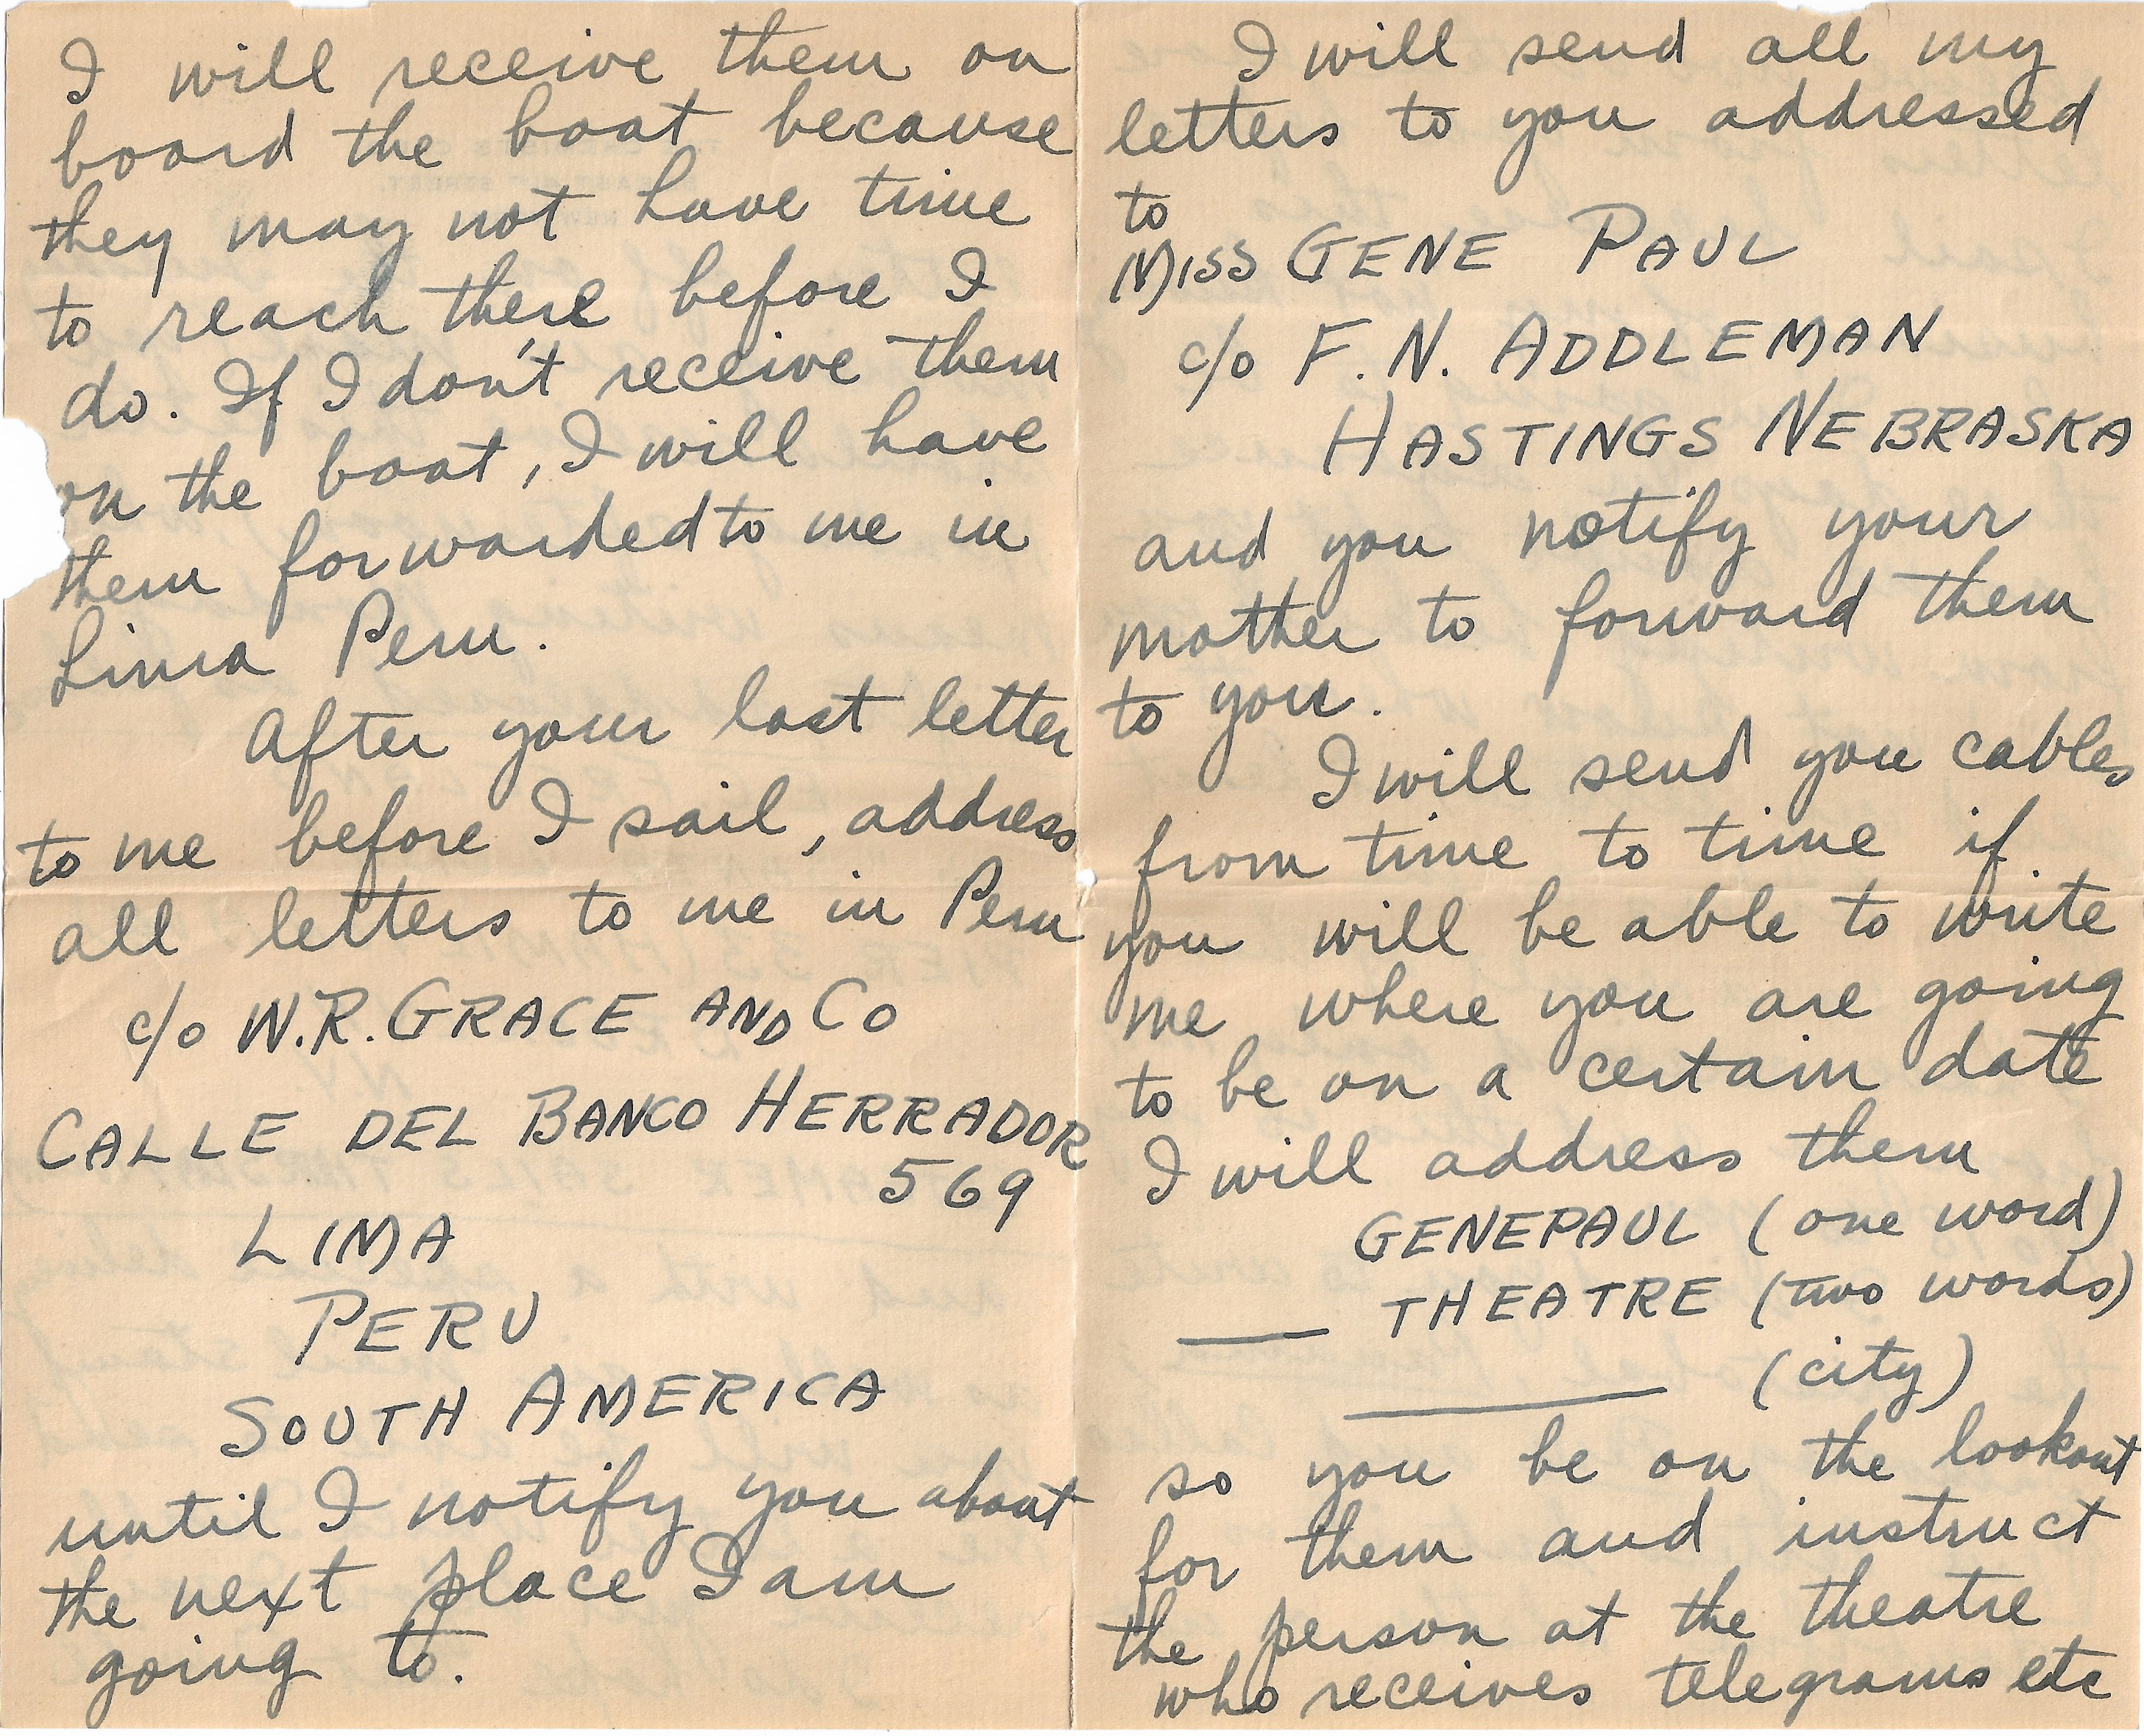 I will receive them on
board the boat because
they may not have time
to reach there before I
do. If I don't receive them
on the boat, I will have
them forwarded to me in
Lima Peru.
After your last letter
to me before I sail, address
all letters to me in Peru
c/o W.R. GRACE AND CO
CALLE DEL BANCO HERRADOR
569
LIMA
PERU
SOUTH AMERICA
until I notify you about
the next place I am
going to.
I will send all my
letters to you addressed
to
MISS GENE PAUL
c/o F. N. ADDLEMAN
HASTINGS NEBRASKA
and you notify your
mother to forward them
to you.
I will send you cables
from time to time if
you will be able to write
me where you are going
to be on a certain date
I will address them
GENEPAUL (one word)
___ THEATRE (two words)
___ (city)
so you be on the lookout
for them and instruct
the person at the theatre
who receives telegrams etc